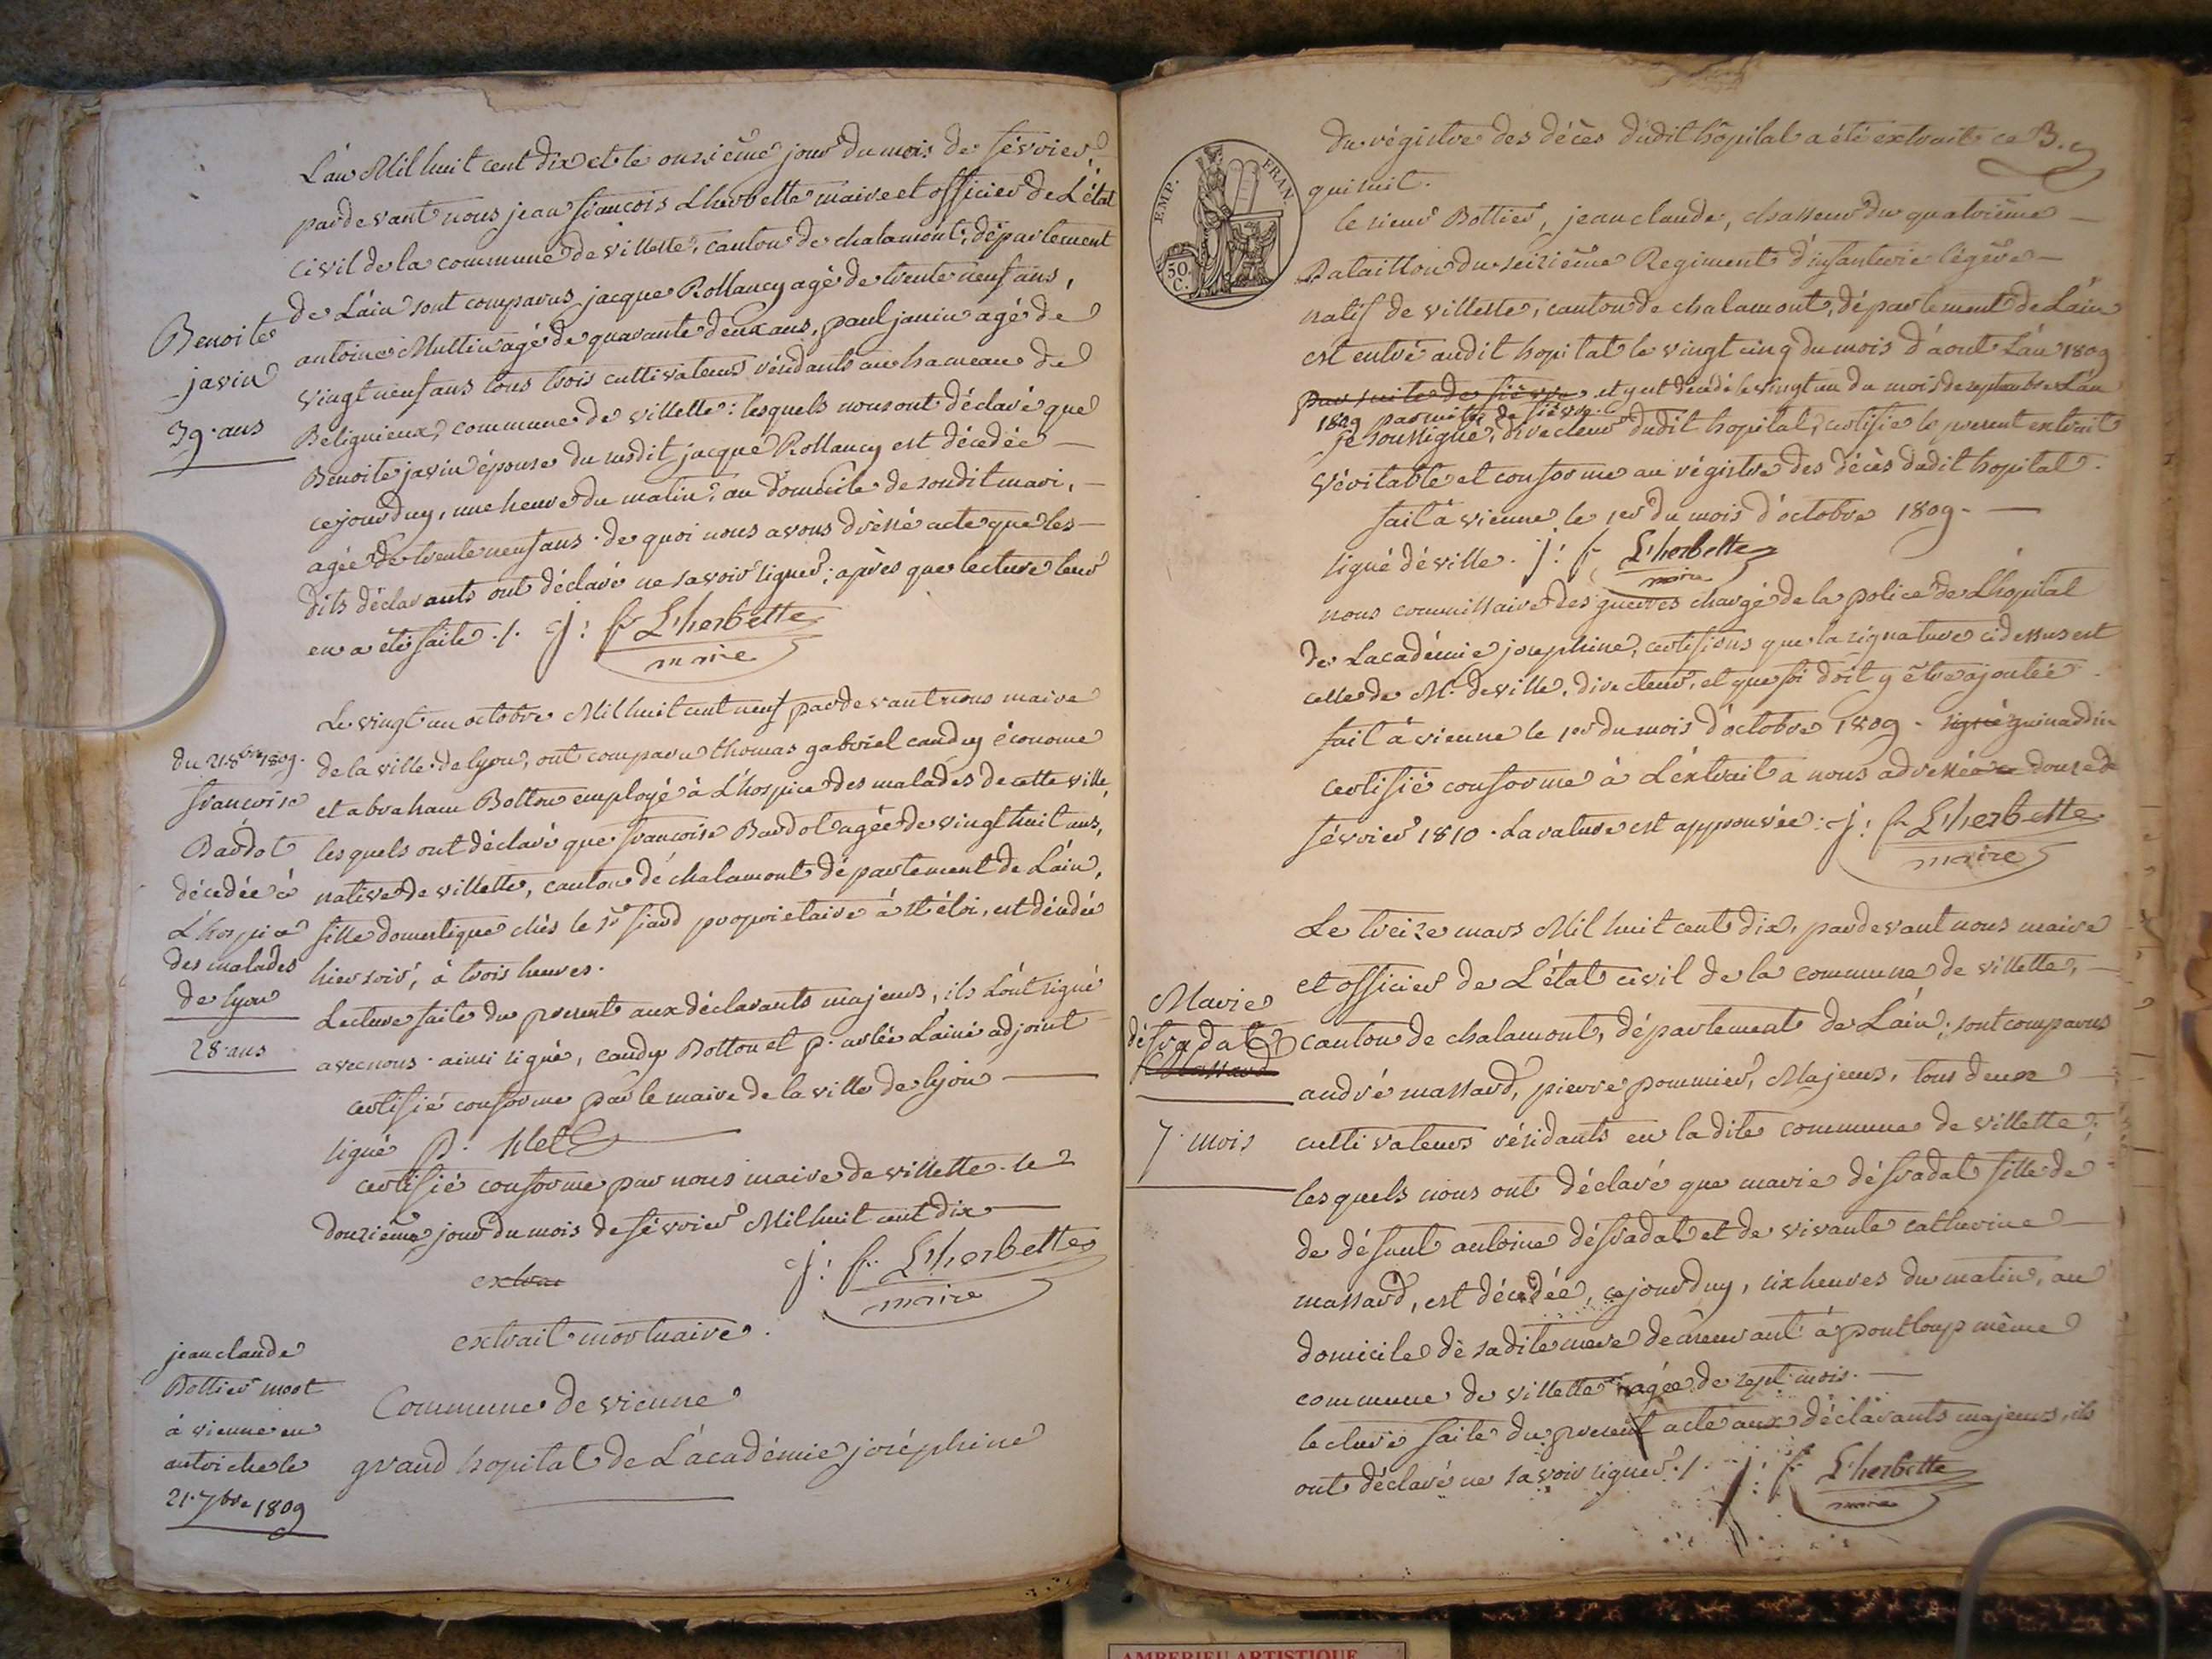 L'an Mil huit cent dix et le onzième jour du mois de février,
pardevant nous jean françois Lherbette maire et officier de L'état
civil de la commune de villette, canton de chalamont, département
de L'ain sont comparus jacque Rollancy agé de trente neuf ans,
antoine Muttin agé de quarante deux ans, paul janin agé de
vingt neuf ans tous trois cultivateurs résidants au hameau de
Belignieux, commune de villette: lesquels nous ont déclaré que
Benoite javin épouse du susdit jacque Rollancy est décedée —
cejourduy, une heure du matin, au domicile de sondit mari, —
agée de trente neuf ans. de quoi nous avons dressé acte que les —
dits déclarants ont déclaré ne savoir signer; après que lecture leur
en a été faite ./. j: f. L'herbette
maire
Benoite
javin
39 ans
Le vingt un octobre Mil huit cent neuf pardevant nous maire
de la ville de lyon, ont comparu thomas gabriel canduy économe
et abraham Botton employé à L'hospice des malades de cette ville,
lesquels ont déclaré que francoise Bardot agée de vingt huit ans,
native de villette, canton de chalamont département de L'ain,
fille domestique chés le Sr fiard propriétaire à St éloi, est décédée
hier soir, à trois heures.
Lecture faite du present aux déclarants majeurs, ils L'ont signé
avec nous. ainsi signé, canduy Botton et p. Lainé adjoint
certifié conforme par le maire de la ville de lyon —
signé p.
certifié conforme par nous maire de villette le
douzième jour du mois de février Mil huit cent dix —
j: f. L'herbette
maire
du 21 8bre 1809.
francoise
Bardot
décedée à
L'hospice
des malades
de lyon
28 ans
extrai
extrait mortuaire.
Commune de vienne
grand hopital de L'académie joséphine
jean claude
Bottier mort
à vienne en
autriche le
21 7bre 1809
EMP. FRAN.
50 C.
du régistre des décès dudit hôpital a été extrait ce
qui suit.
le sieur Bottier, jean claude, chasseur du quatrième —
Bataillon du seizième Regiment d'infanterie légère —
natif de villette, canton de chalamont, département de L'ain
est entré audit hopital le vingt cinq du mois d'aout L'an 1809
par suite de fièvre et y est décédé le vingt un du mois de septembre L'an
1809 par suite de fièvre.
je soussigné, directeur dudit hopital, certifie le present extrait
véritable et conforme au régistre des décès dudit hopital.
fait à vienne le 1er du mois d'octobre 1809. —
signé déville. j: f. L'herbette
maire
nous commissaire des guerres chargé de la police de L'hopital
de Lacadémie josephine, certifions que la signature cidessus est
celle de Mr. deville, directeur, et que foi doit y être ajoutée.
fait à vienne le 1er du mois d'octobre 1809. signé
certifié conforme à L'éxtrait a nous adressé ce douze de
février 1810. La rature est approuvée. j: f. L'herbette
maire
Le treize mars Mil huit cent dix, pardevant nous maire
et officier de L'état civil de la commune de villette, —
canton de chalamont, département de L'ain; sont comparus
andré massard, pierre pommier, Majeurs, tous deux
cultivateurs résidants en la dite commune de villette;
lesquels nous ont déclaré que marie défradat fille de
de défunt antoine défradat et de vivante catherine —
massard, est décédée, cejourduy, six heures du matin, au
domicile de sa dite mere demeurant à pontloup même
commune de villette agée de sept mois. —
lecture faite du present acte aux déclarants majeurs, ils
ont déclaré ne savoir signer ./. j: f. L'herbette
maire
Marie
défradat
Massard
7 mois
AMBERIEU ARTISTIQUE